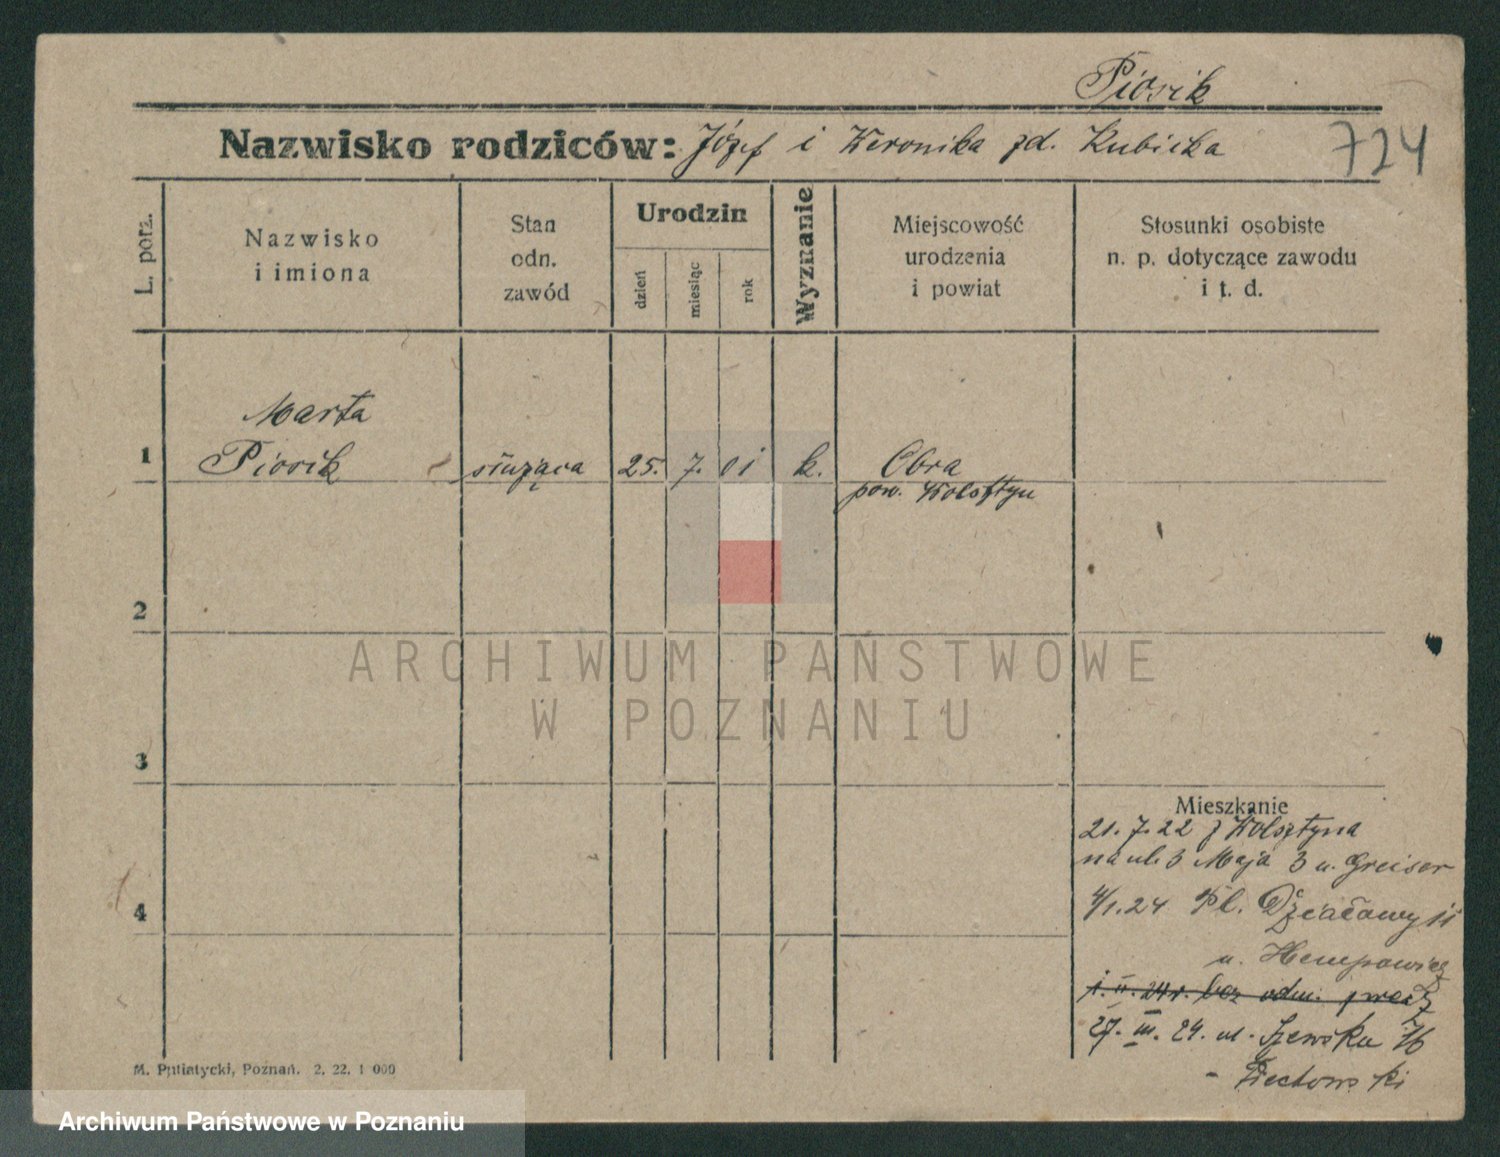 Piosik
Nazwisko rodziców: Józef i Weronika zd. Kubicka
724
L. porz.
Nazwisko
i imiona
Stan
odn.
zawód
Urodzin
dzień
miesiąc
rok
Wyznanie
Miejscowość
urodzenia
i powiat
Stosunki osobiste
n. p. dotyczące zawodu
i t. d.
Marta
1 Piosik służąca 25. 7. 01 k. Obra
pow. Wolsztyn
2
ARCHIWUM PAŃSTWOWE
W POZNANIU
3
Mieszkanie
21.7.22 z Wolsztyna
na ul. 3 Maja 3 u. Greiser
4
4/1.24 Pl. Działowy 11
u.
1. II. 24 r. bez odm. przez
27. III. 24. ul. Szewska 16
-
M. Putiatycki, Poznań. 2. 22. 1 000
Archiwum Państwowe w Poznaniu